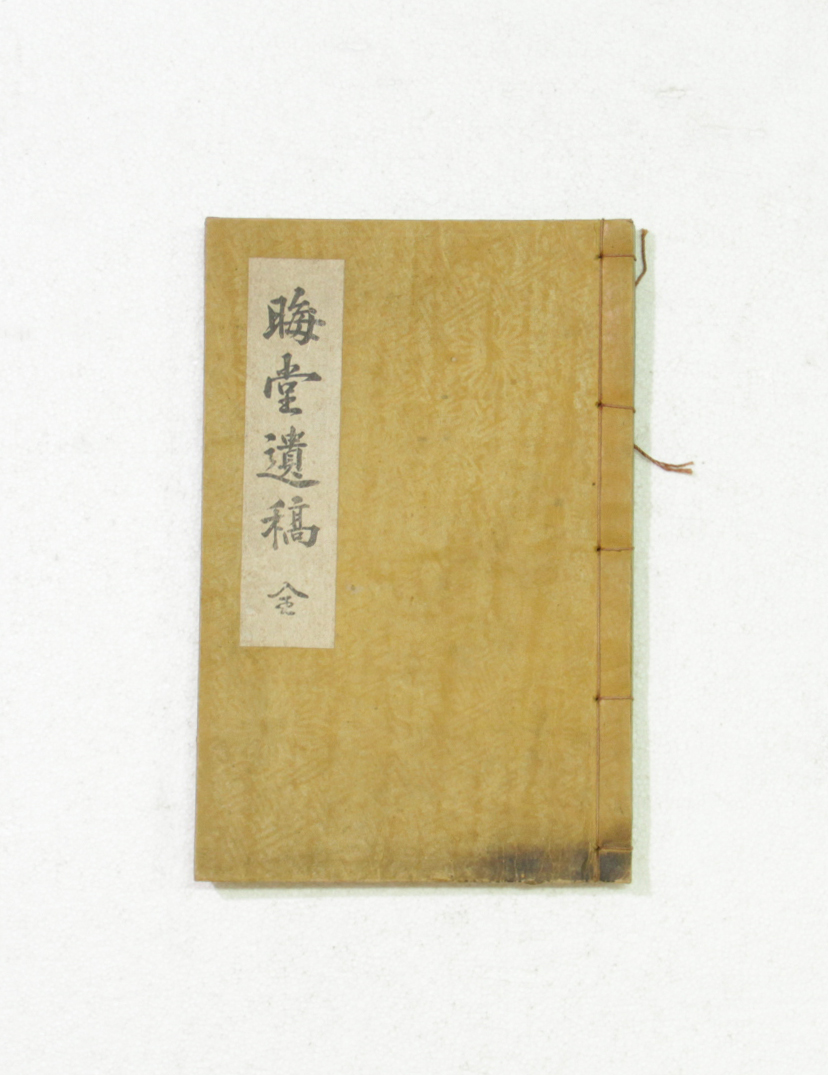 晦堂遺稿 全